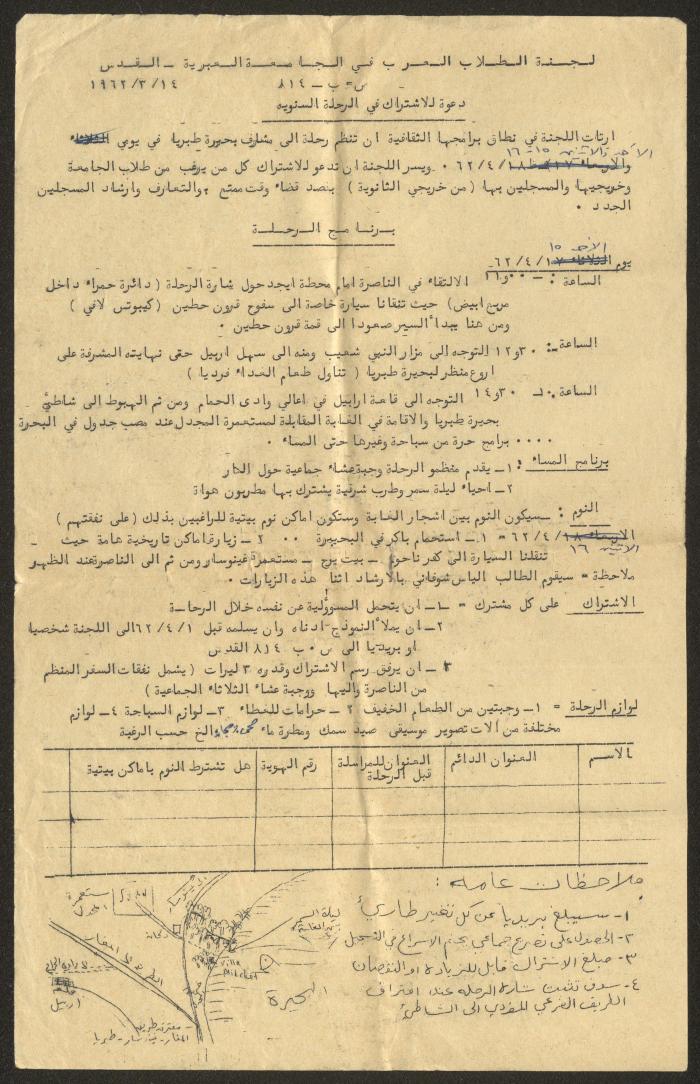 لجنة الطلاب العرب في الجامعة العبرية - القدس
ص٠ب - ٨١٤ ١٩٦٢/٣/١٤
دعوة للاشتراك في الرحلة السنويه
ارتات اللجنة في نطاق برامجها الثقافية ان تنظم رحلة الى مشارف بحيرة طبريا في يومي الثلاثاء
الاحد والاثنين ١٥-١٦
والاربعاء ٦٢/٤/١ ٠ ويسر اللجنة ان تدعو للاشتراك كل من يرغب من طلاب الجامعة
وخريجيها والمسجلين بها ( من خريجي الثانوية ) بقصد قضاء وقت ممتع والتعارف وارشاد المسجلين
الجدد ٠
برنامج الرحلة
الاحد ١٥
يوم الثلاثاء ٦٢/٤/١٧
الساعة :- ٠٠و١١ الالتقاء في الناصرة امام محطة ايجد حول شارة الرحلة ( دائرة حمراء داخل
مربع ابيض) حيث تنقلنا سيارة خاصة الى سفوح قرون حطين ( كيبوتس لافي )
ومن هنا يبدأ السير صعودا الى قمة قرون حطين ٠
الساعة :- ٣٠و١٢ التوجه الى مزار النبي شعيب ومنه الى سهل اربيل حتى نهايته المشرفة على
اروع منظر لبحيرة طبريا ( تناول طعام الغداء فرديا )
الساعة :- ٣٠و١٤ التوجه الى قلعة ارابيل في اعالي وادى الحمام ومن ثم الهبوط الى شاطئ
بحيرة طبريا والاقامة في الغابة المقابلة لمستعمرة المجدل عند مصب جدول في البحيرة
٠٠٠٠ برامج حرة من سباحة وغيرها حتى المساء ٠
برنامج المساء : ١- يقدم منظمو الرحلة وجبة عشاء جماعية حول النار
٢- احياء ليلة سمر وطرب شرقية يشترك بها مطربون هواة
النوم : - سيكون النوم بين اشجار الغابة وستكون اماكن نوم بيتية للراغبين بذلك (على نفقتهم )
الاربعاء ٦٢/٤/١٨ = ١- استحمام باكر في البحيرة ٠٠ ٢- زيارة اماكن تاريخية هامة حيث
الاثنين ١٦
تنقلنا السيارة الى كفر ناحوم - بيت يرح - مستعمرة غينوسار ومن ثم الى الناصرة عند الظهر
ملاحظة = سيقوم الطالب الياس شوفاني بالارشاد اثناء هذه الزيارات ٠
الاشتراك على كل مشترك = ١- ان يتحمل المسؤلية عن نفسه خلال الرحلة
٢- ان يملأ النموذج ادناه وان يسلمه قبل ٦٢/٤/١ الى اللجنة شخصيا
او بريديا الى ص ٠ ب ٨١٤ القدس
٣ - ان يرفق رسم الاشتراك وقدره ٣ ليرات ( يشمل نفقات السفر المنظم
من الناصرة واليها ووجبة عشاء الثلاثاء الجماعية )
لوازم الرحلة = ١- وجبتين من الطعام الخفيف ٢ - حرامات للغطاء ٣- لوازم السباحة ٤- لوازم
مختلفة من الات تصوير موسيقى صيد سمك ومطرة ماء الخ حسب الرغبة
الاسم
العنوان الدائم
العنوان للمراسلة قبل الرحلة
رقم الهوية
هل تشترط النوم باماكن بيتية
ملاحظات عامه :
١- سيبلغ بريديا عن كل تغيير طارئ
٢- الحصول على تصريح جماعي يحتم الاسراع في التسجيل
٣- مبلغ الاشتراك قابل للزيادة او النقصان
٤- سوف تثبت شارة الرحلة عند افتراق
الطريق الفرعي المؤدي الى الشاطئ
مستعمرة المجدل
ليلة السمر
البحيرة
اربيل
villa
Milchet
مفترق طريق
المغار - طبريا